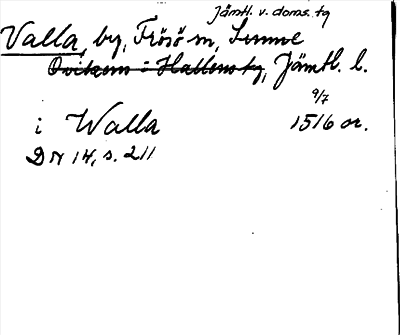 Jämtl. v. doms. tg
Valla, by, Frösö sn, Sunne
Oviken o Hallens tg, Jämtl. l.
9/7
i Walla 1516 or.
DN 14, s. 211